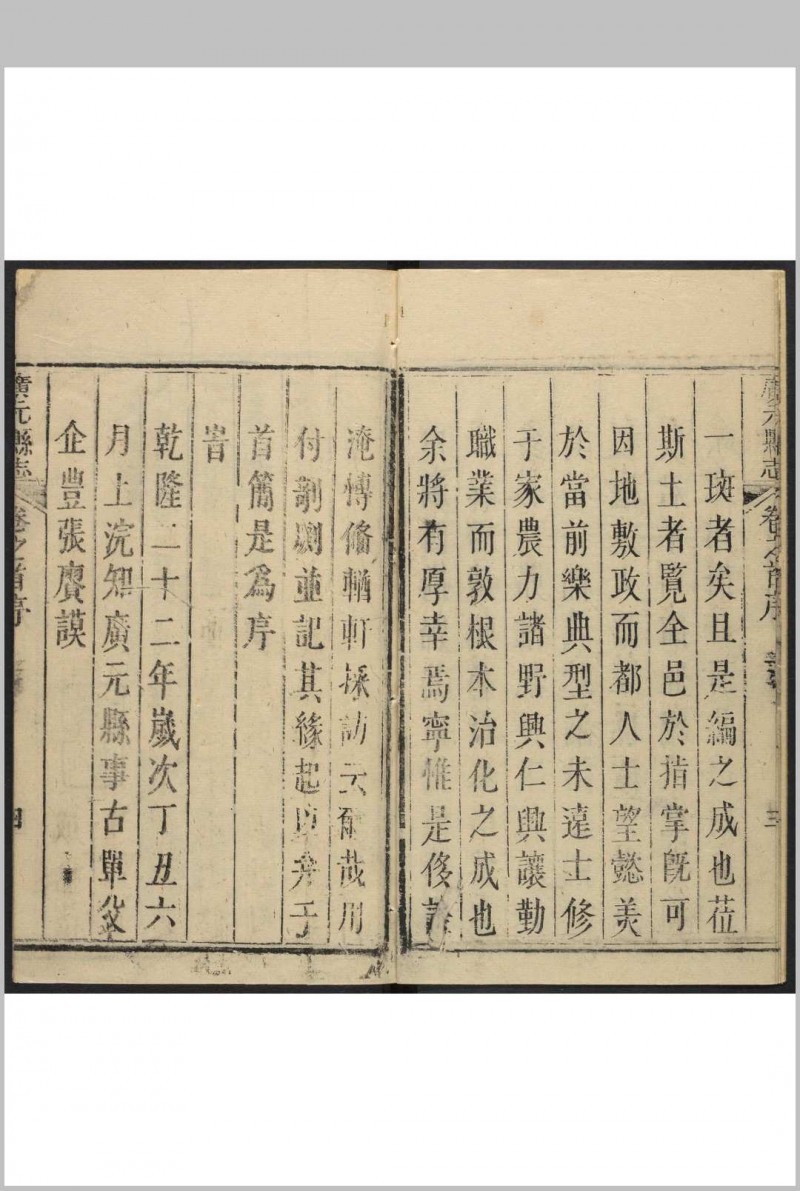 廣元縣志 卷之首序 三
一斑者矣且是編之成也蒞
斯土者覽全邑於指掌旣可
因地敷政而都人士望懿美
於當前樂典型之未遠士修
于家農力諸野興仁興讓勤
職業而敦根本治化之成也
余將有厚幸焉寧惟是侈
淹博偹輶軒採訪云爾哉用
付剞劂並記其緣起
首簡是爲序
旹
乾隆二十二年歲次丁丑六
月上浣知廣元縣事古單父
企豐張賡謨
廣元縣志 卷之首序 四